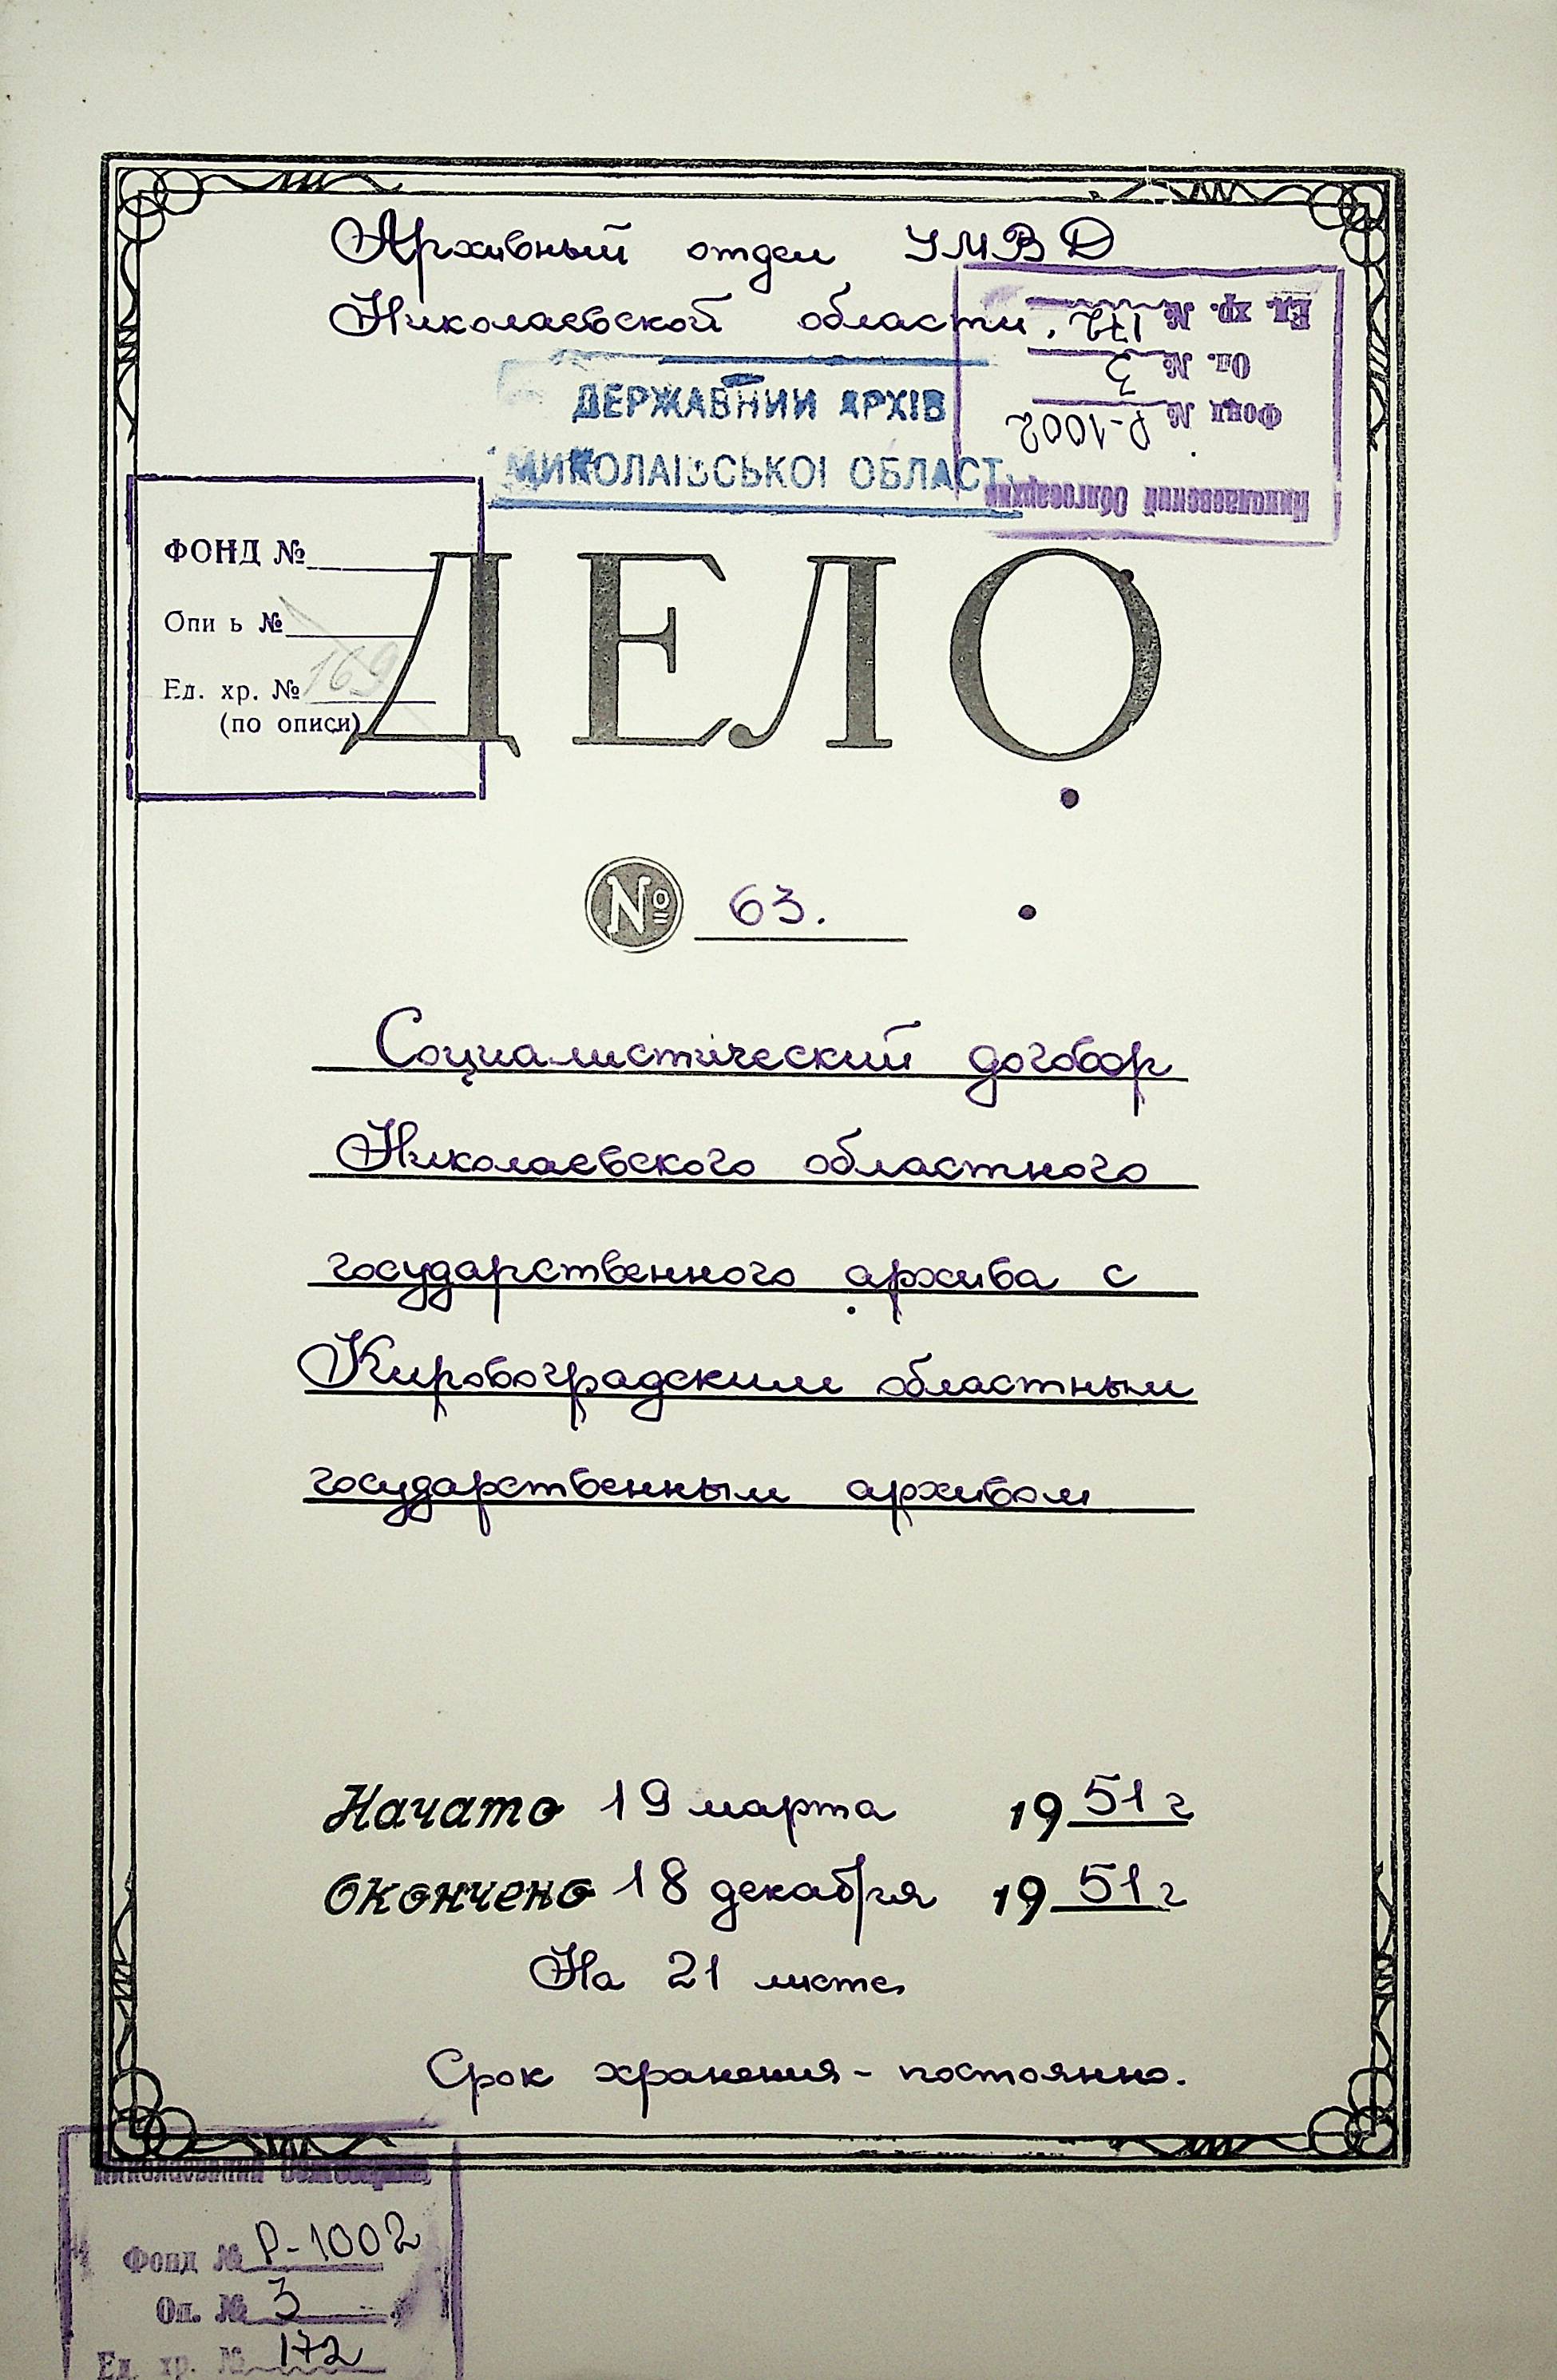 Архивный отдел УМВД
Николаевской области.
Ед. хр. № 172
Оп. № 3
Фонд № Р-1002
Николаевский Облгосархив
ДЕРЖАВНИЙ АРХІВ
МИКОЛАЇВСЬКОЇ ОБЛАСТІ
ФОНД №
Опи ь №
Ед. хр. № 169
(по описи)
ДЕЛО
№ 63.
Социалистический договор
Николаевского областного
государственного архива с
Кировоградским областным
государственным архивом
Начато 19 марта 1951 г
Окончено 18 декабря 1951 г
На 21 листе
Срок хранения - постоянно.
Николаевский Облгосархив
Фонд № Р-1002
Оп. № 3
Ед. хр. № 172